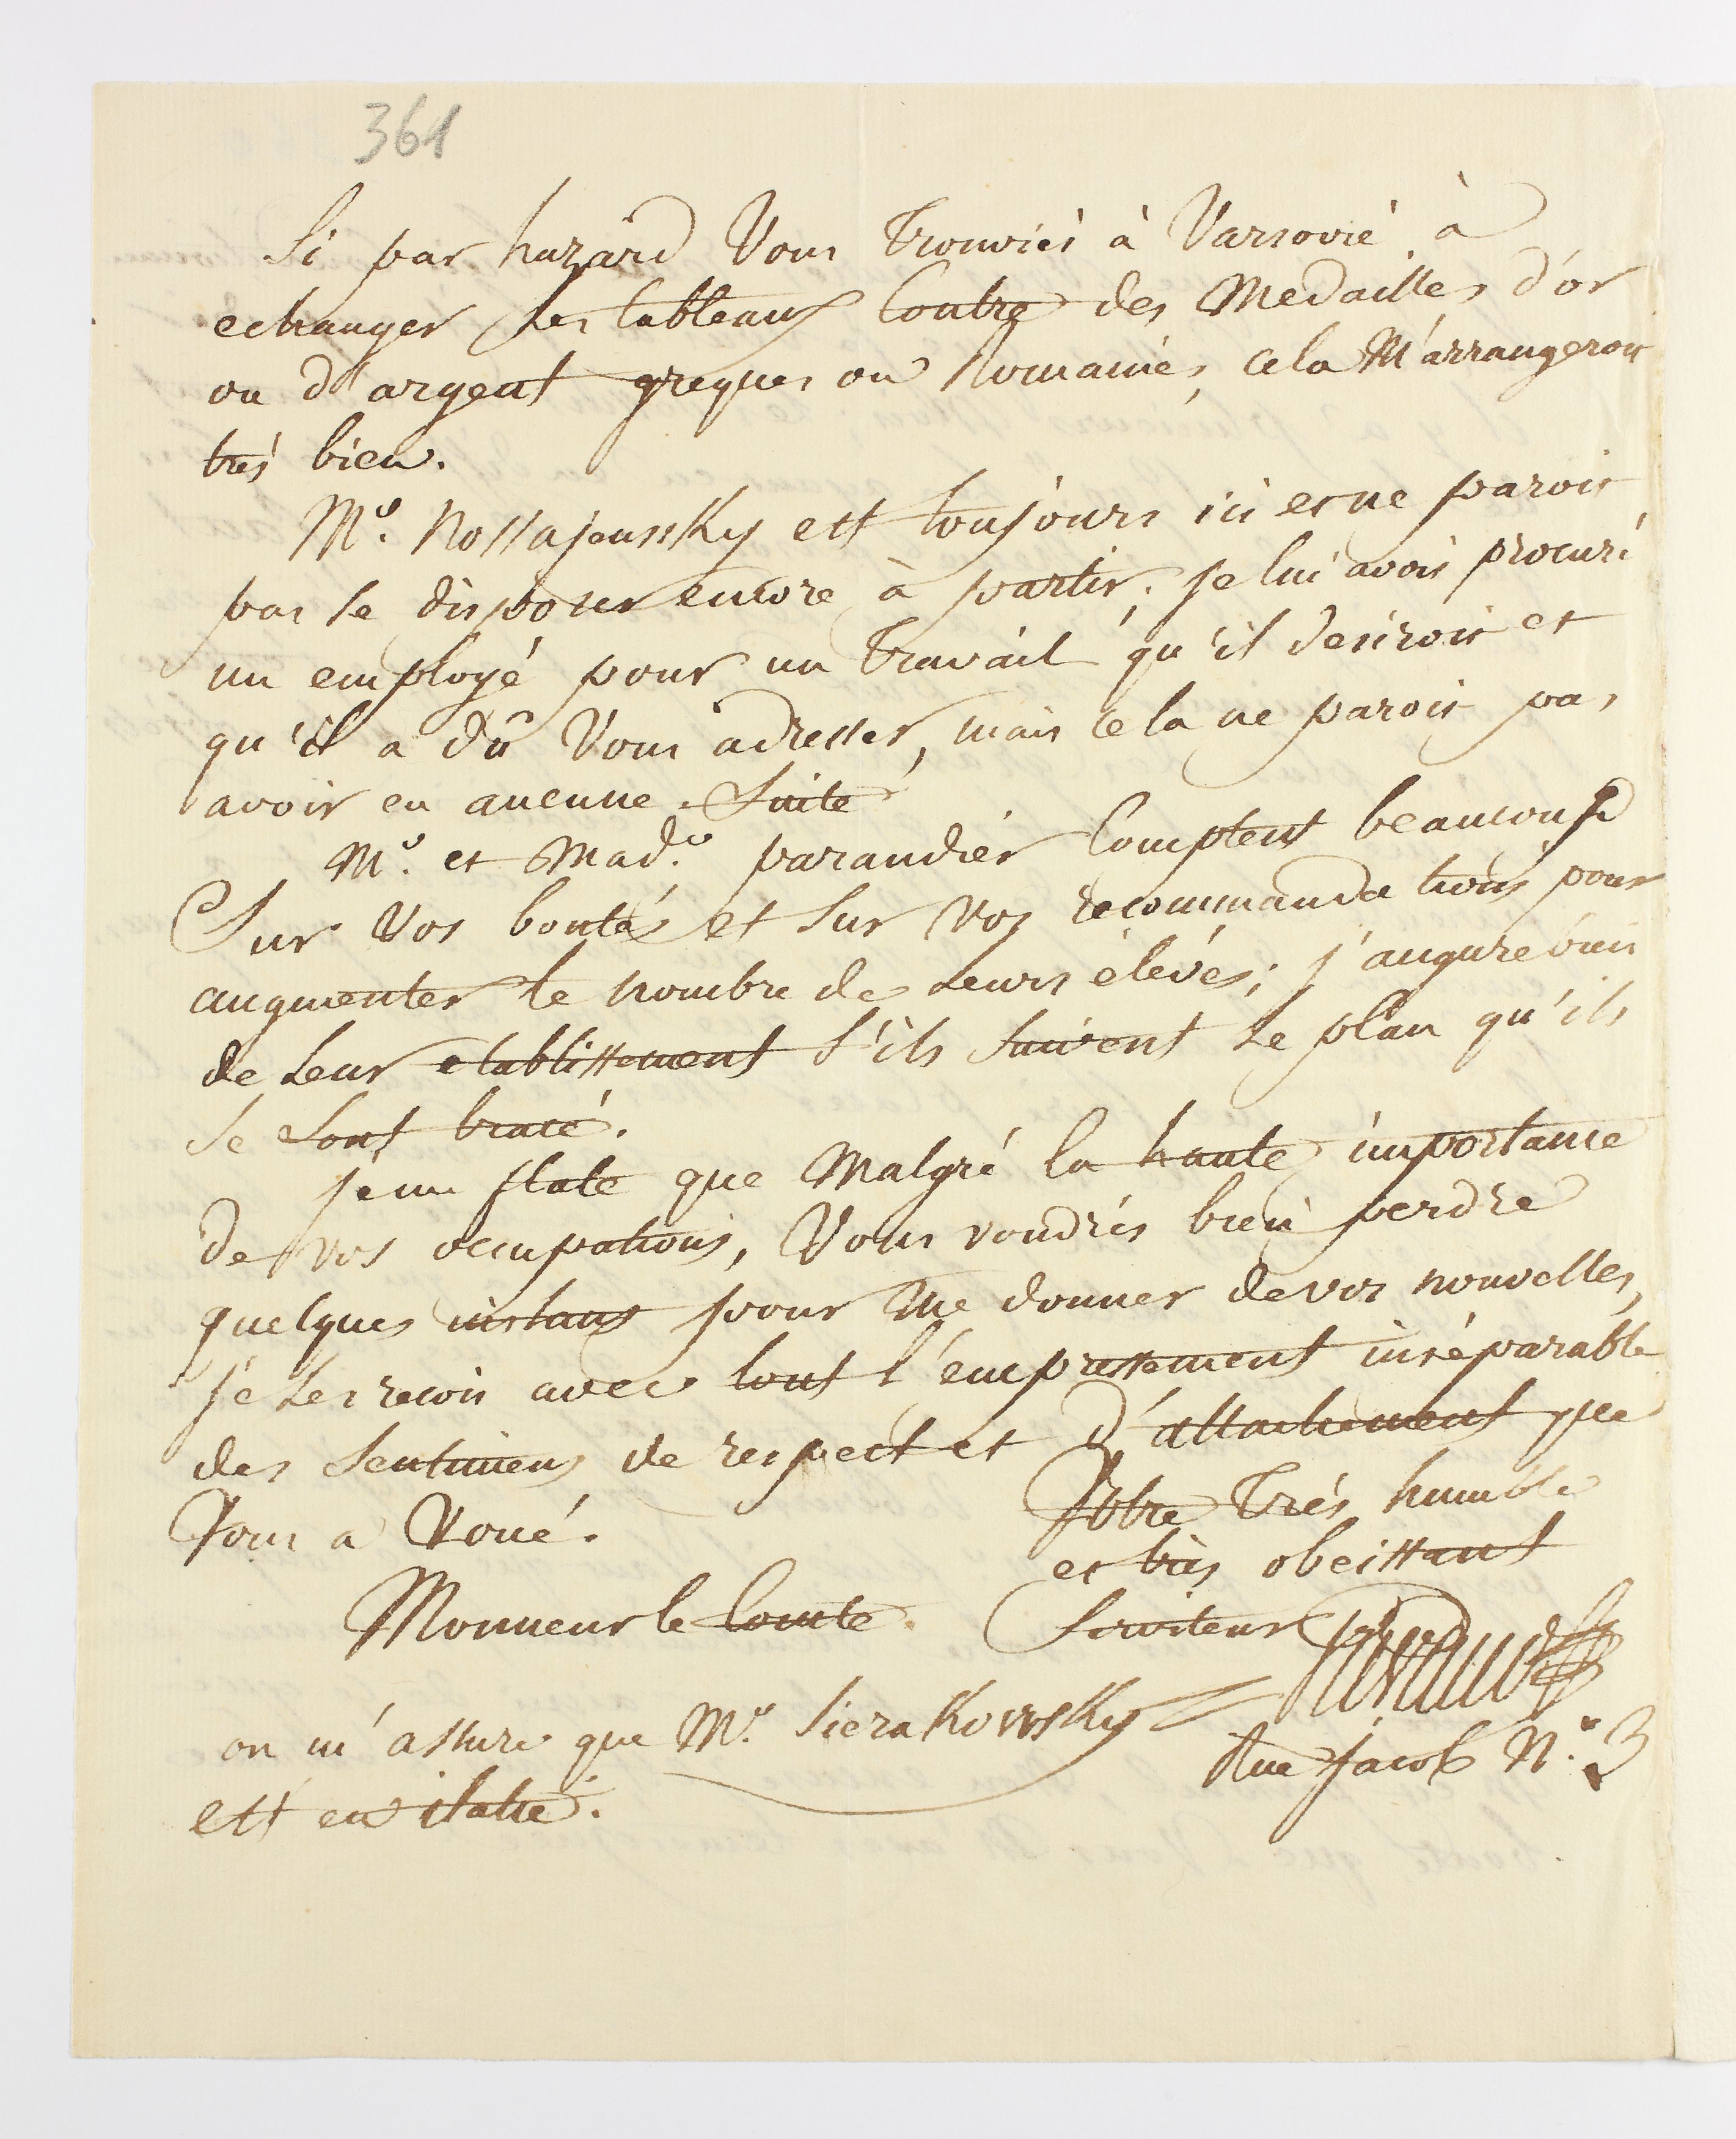 361
Si par hazard Vous Trouviés à Varsovie à
echanger les tableaux Contre des Medailles d'or
ou d'argent greques ou Romaines, cela M'arrangeroit
très bien.
Mr. Nossajousky est toujours ici et ne paroit
pas se disposer encore à partir. je lui avois procuré
un employé pour un Travail qu'il desiroit et
qu'il a dû Vous adresser, mais cela ne paroit pas
avoir eu aucune Suite
Mr. et Made. parandier Comptent beaucoup
Sur Vos bontés et Sur Vos recommandations pour
augmenter le nombre de Leurs élèves; j'augure bien
de Leur etablissement S'ils Suivent Le plan qu'ils
Se Sont tracé.
je me flate que Malgré la haute importance
de Vos occupations, Vous voudrés bien perdre
quelques instans pour Me donner de vos nouvelles,
je Les reçois avec tout l'empressement inséparable
des Sentimens de respect et d'attachement que
Vous a Voué.
Votre Très humble
et très obeissant
Monsieur le Comte. Serviteur
on m'assure que Mr. SieraKowsKy
Rue jacob N.o 3
est en italie.